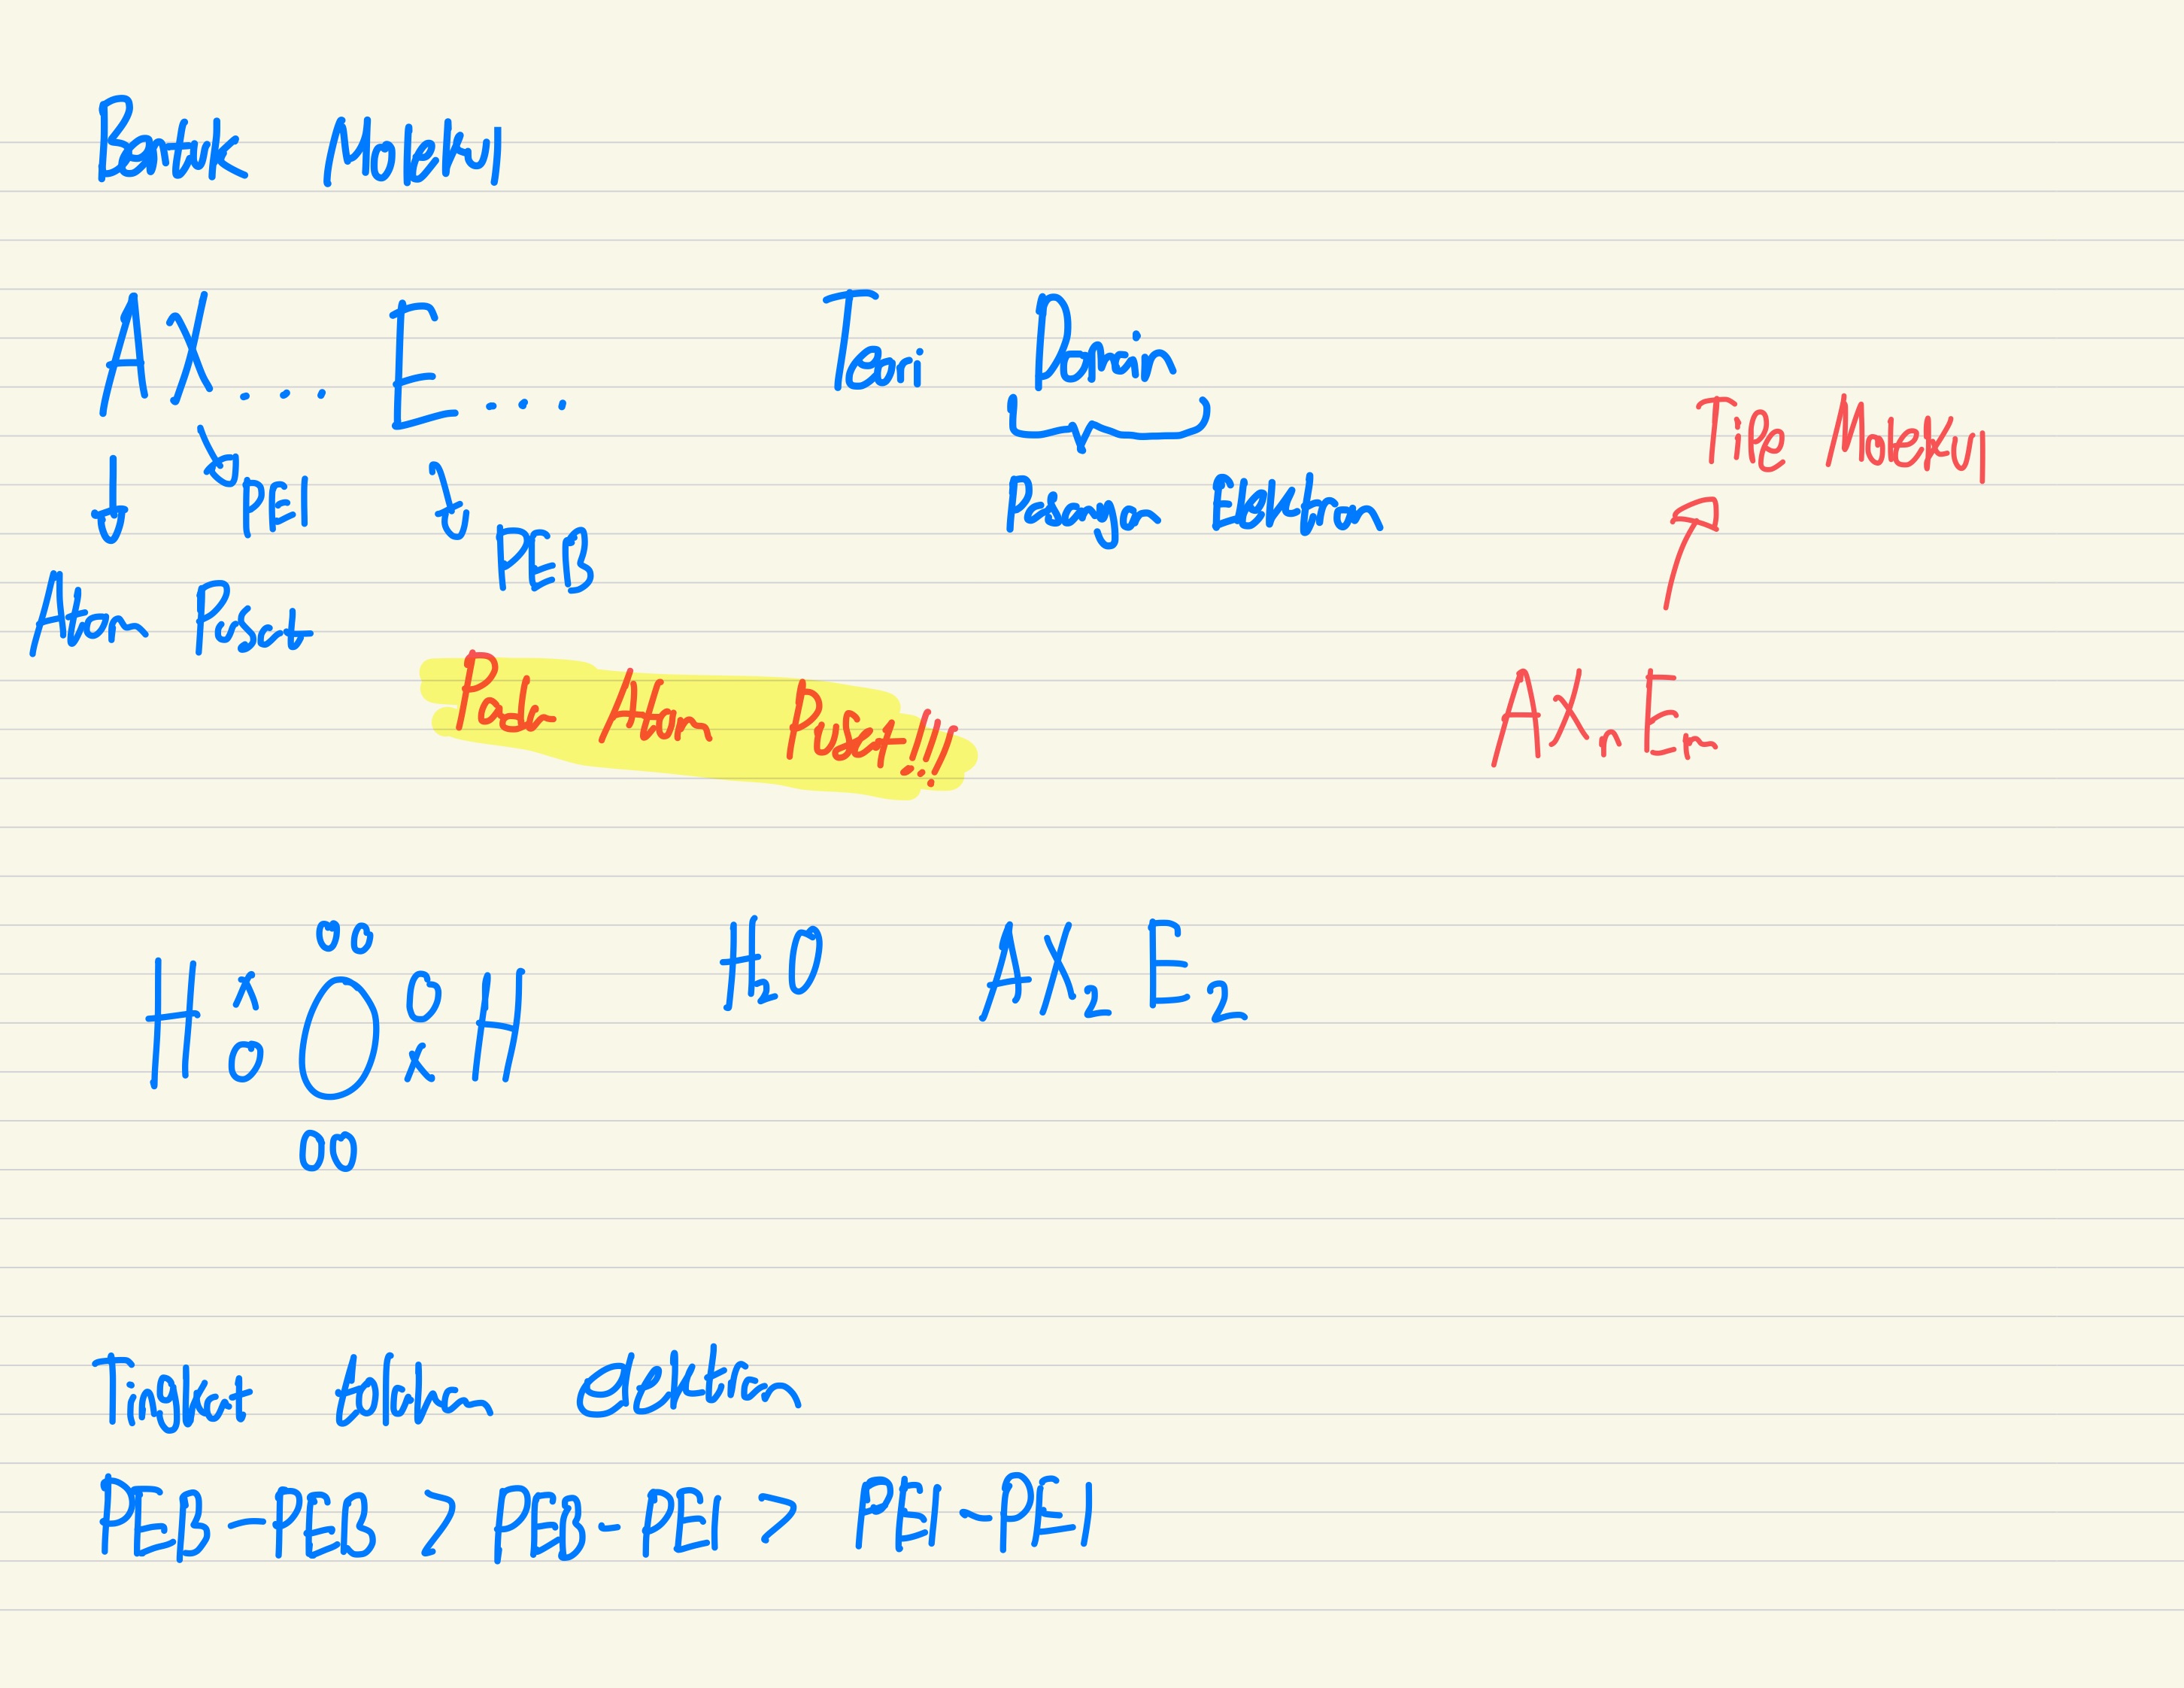 Bentuk Molekul
AX.... E.... Teori Domain
Tipe Molekul
PEI Pasangan Elektron
PEB
Atom Pusat
Pada Atom Pusat!!!
AXnEm
H O H
H2O AX2E2
Tingkat tolakan elektron
PEB - PEB > PEB - PEI > PEI - PEI